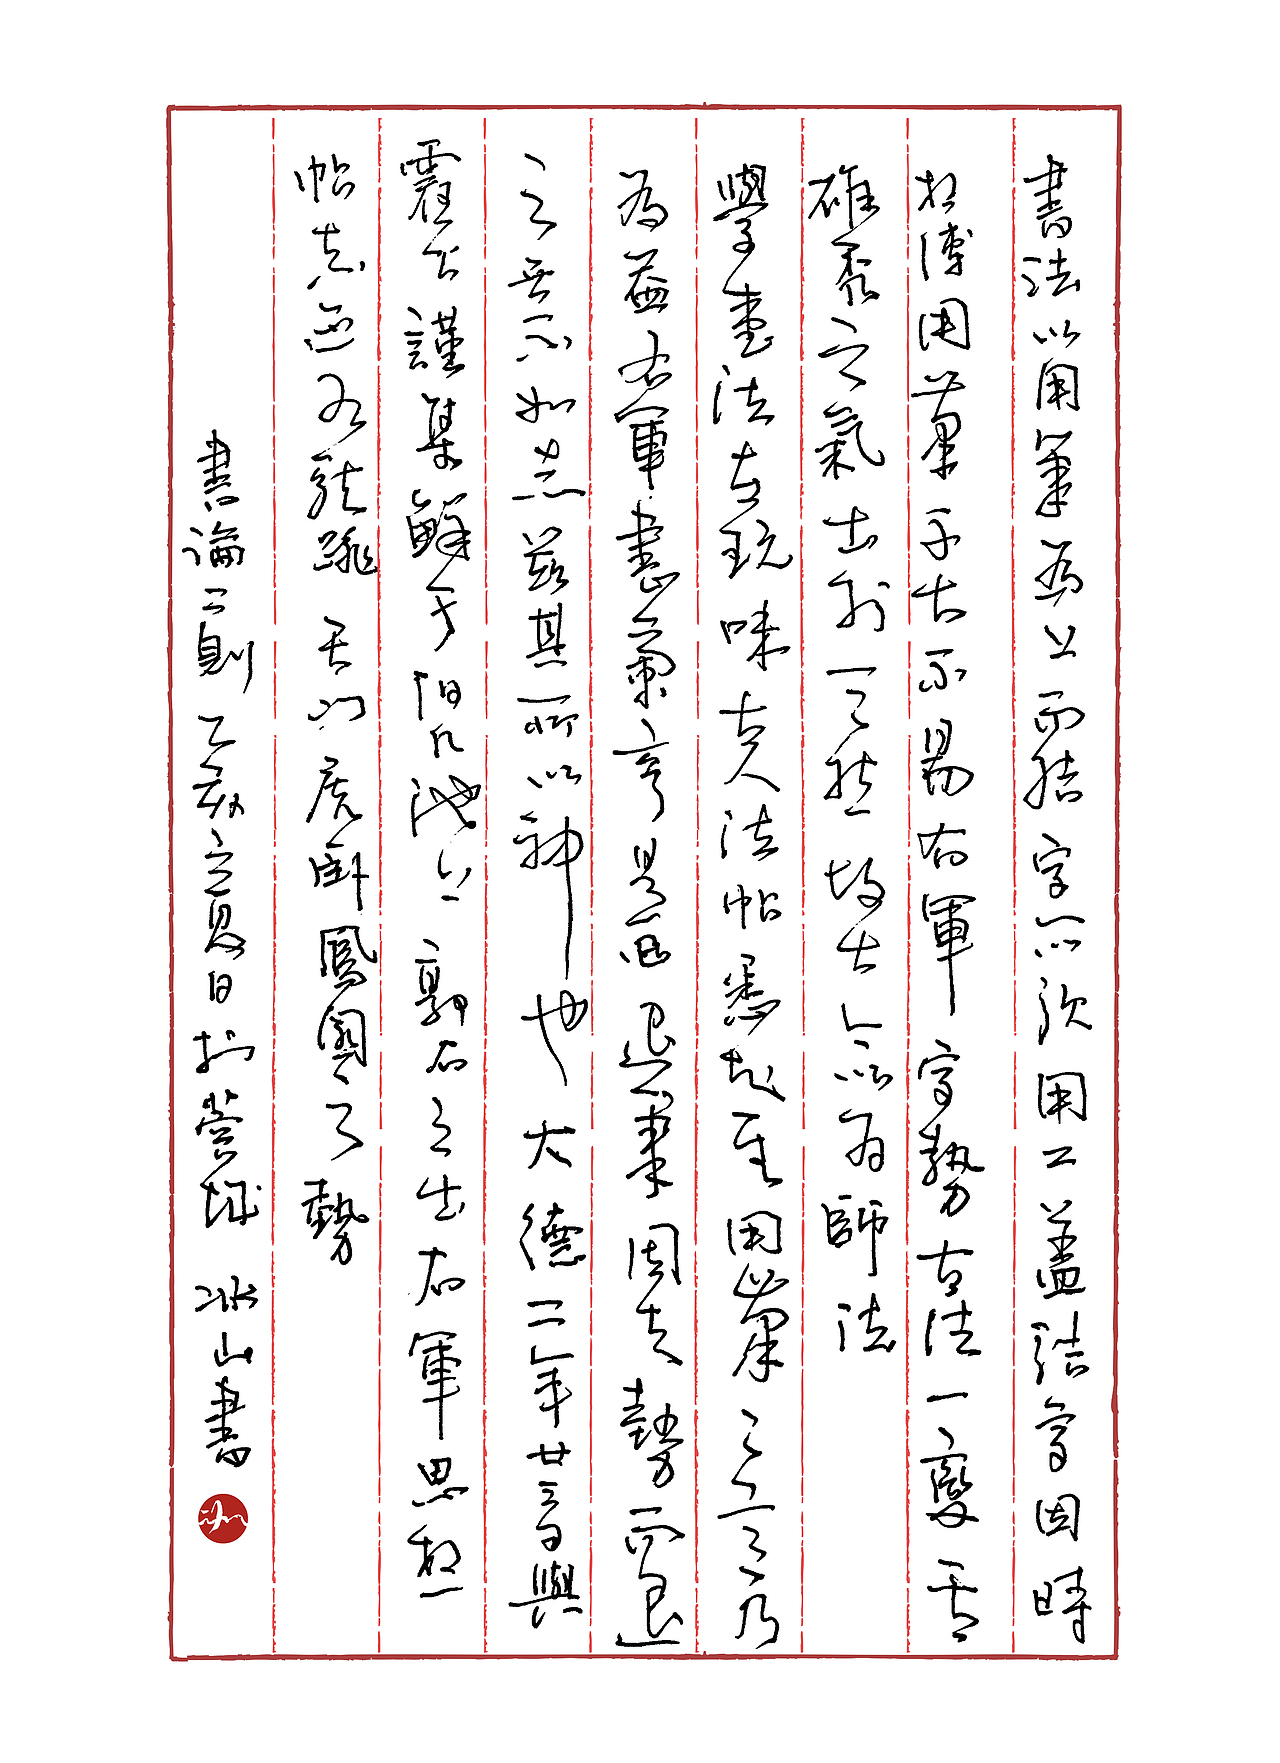 書法以用筆為上而結字亦須用工蓋結字因時
相傳用筆千古不易右軍字勢古法一變其
雄秀之氣出於天然故古今以為師法
學書法在玩味古人法帖悉知其用筆之意乃
為益右軍書蘭亭是已退筆因其勢而退
之無不如志茲其所以神也大德二年廿三日與
霍公謹集鮮于伯幾池上郭右之出右軍思想
帖真迹有龍跳天門虎臥鳳閣之勢
書論二則己亥立夏日於營城 冰山書